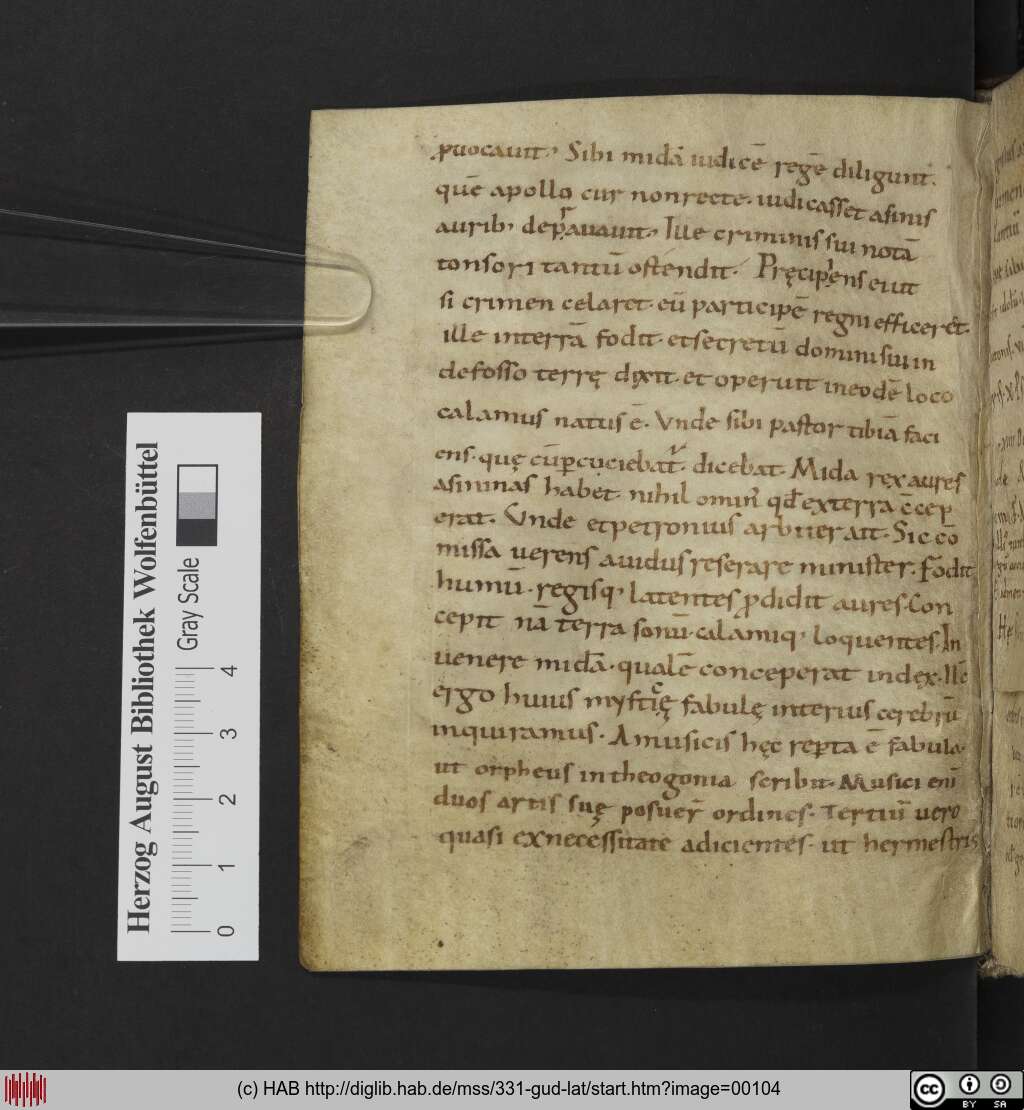 ꝓuocauit. Sibi midā iudicē regē diligunt.
quē apollo cur nonrecte. iudicasset asinis
aurib; deprauauit. Ille criminis sui notā
tonsori tantū ostendit. Pręcipiens ei ut
si crimen celaret. eū participē regni efficeret.
ille interrā fodit. etsecretū domini sui in
defosso terrę dixit. et operuit ineodē loco
calamus natus ē. Vnde sibi pastor tibiā faci
ens. quę cū ꝑcuciebatur. dicebat. Mida rex aures
asininas habet. nihil omin' qđ exterra c̄cep
erat. Vnde etpetronius arbiter ait. Sic cō
missa uerens auidus reserare minister. Fodit
humū. regisq; latentes ꝓdidit aures. Con
cepit nā terra sonū. calamiq; loquentes. In
uenere midā. qualē conceperat index. Ilľ
ergo huius mysticę fabulę interius cerebrū
inquiramus. Amusicis hęc reꝑta ē fabula.
ut orpheus intheogonia scribit. Musici enī
duos artis suę posuer̄ ordines. Tertiū uero
quasi exnecessitate adicientes. ut hermestris
Herzog August Bibliothek Wolfenbüttel
Gray Scale
0 1 2 3 4
(c) HAB http://diglib.hab.de/mss/331-gud-lat/start.htm?image=00104
cc BY SA